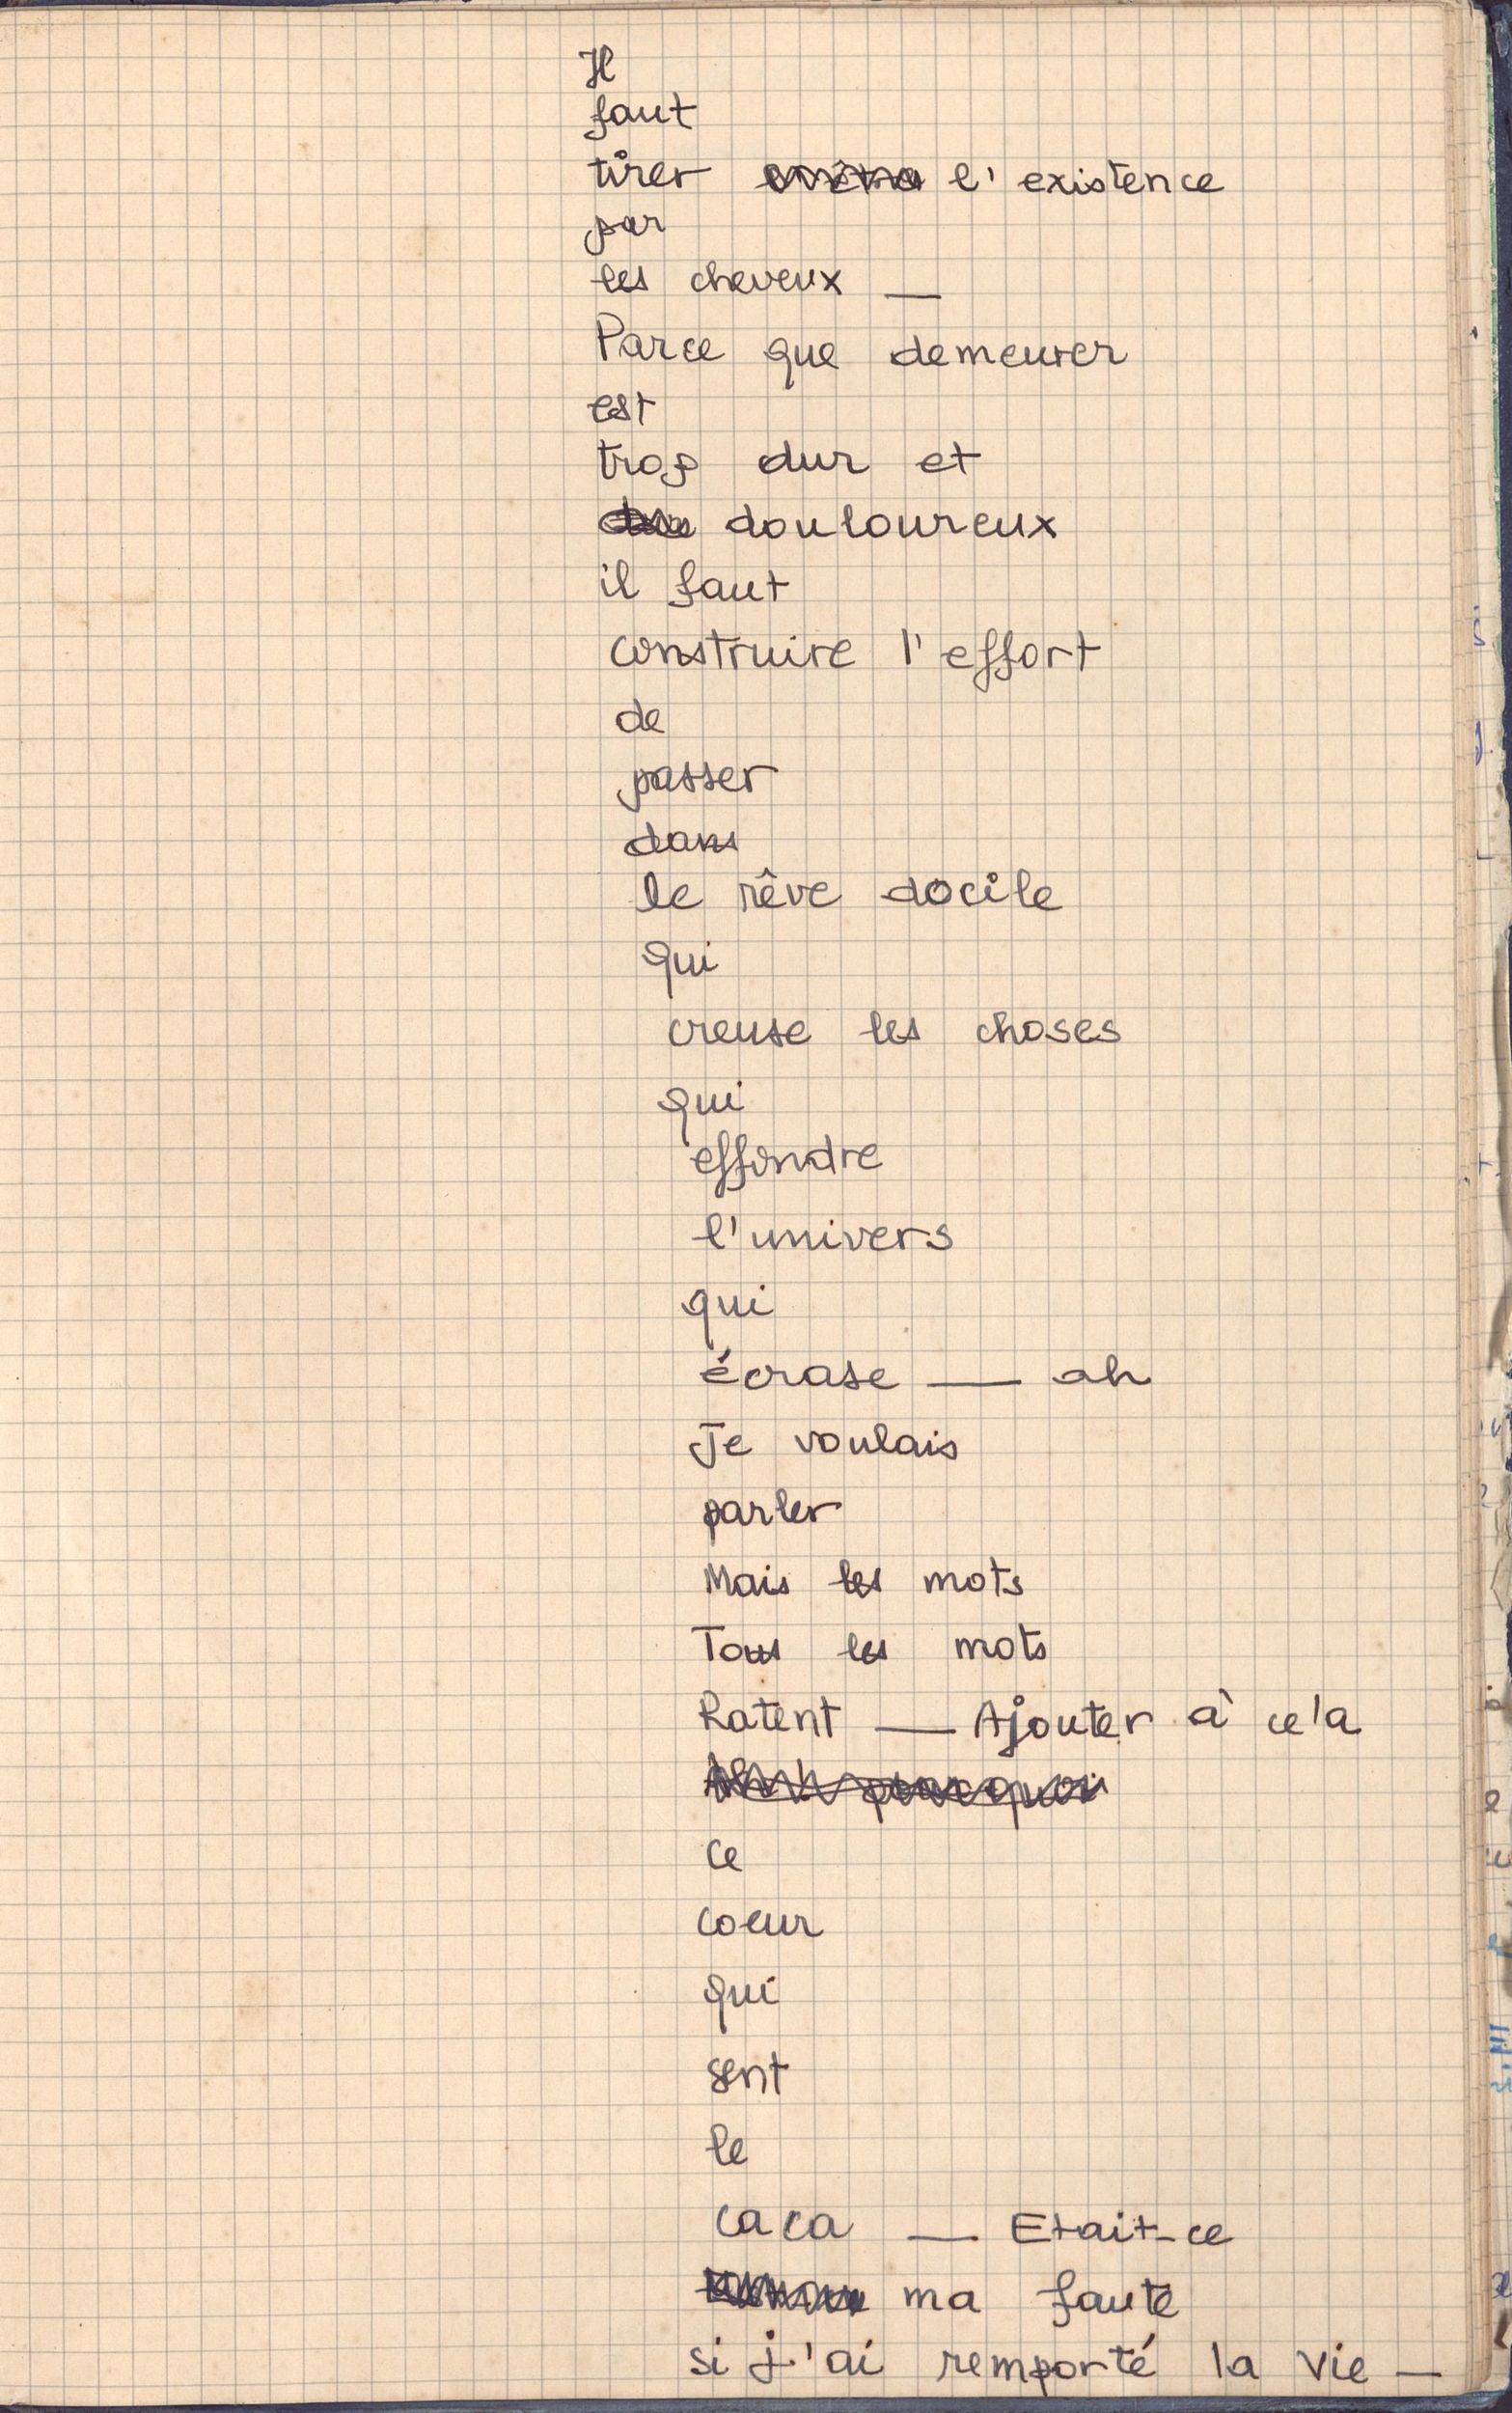 Il
faut
tirer l'existence
par
les cheveux —
Parce que demeurer
est
trop dur et
douloureux
il faut
construire l'effort
de
passer
dans
le rêve docile
qui
creuse les choses
qui
effondre
l'univers
qui
écrase — ah
Je voulais
parler
Mais les mots
Tous les mots
Ratent — Ajouter à cela
ce
coeur
qui
sent
le
caca — Etait-ce
ma faute
si j'ai remporté la vie —